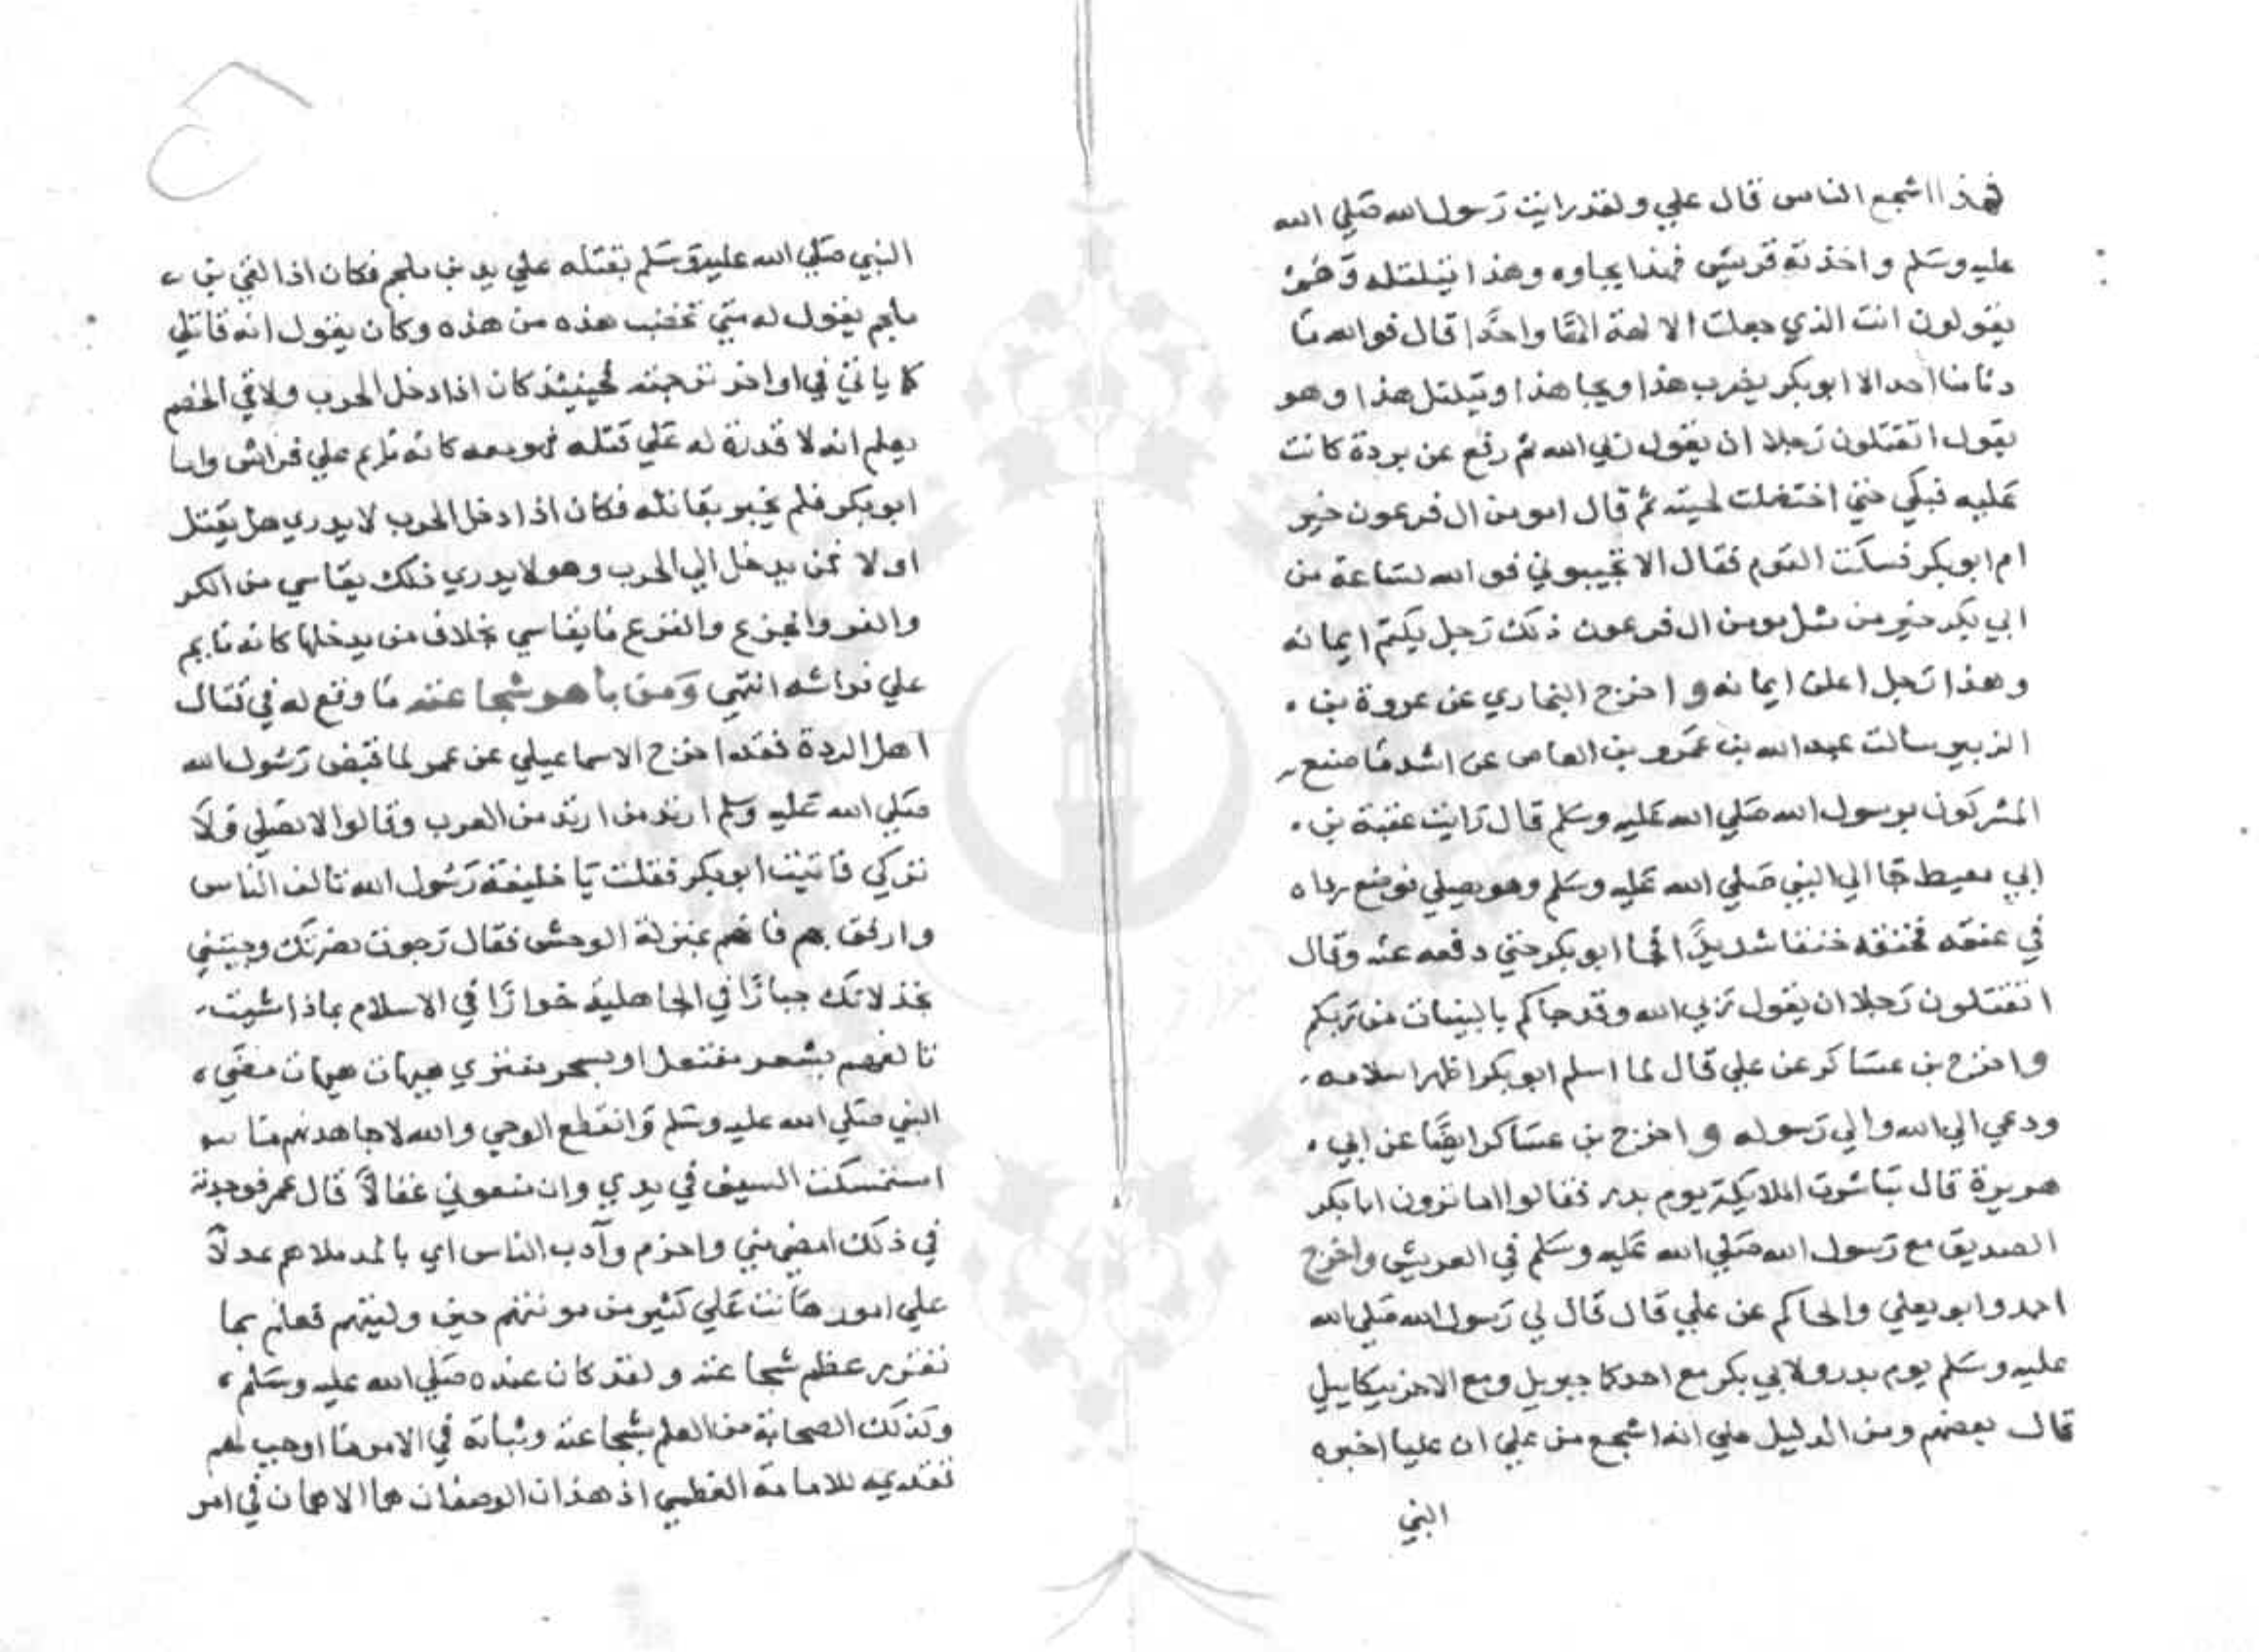 فهذا اشجع الناس قال علي ولقد رايت رسول الله صلي الله
عليه وسلم واخذته قريش فهذا يجاوه وهذا يتلتله وهم
يقولون انت الذي جعلت الالهة الها واحدا قال فوالله ما
دنا منا احد الا ابو بكر يضرب هذا ويجا هذا ويتلتل هذا وهو
يقول اتقتلون رجلا ان يقول ربي الله ثم رفع عن بردة كانت
عليه فبكي حتي اخضلت لحيته ثم قال امومن ال فرعون خير
ام ابو بكر فسكت القوم فقال الا تجيبوني فوالله لساعة من
ابي بكر خير من مثل مومن ال فرعون ذلك رجل يكتم ايمانه
وهذا رجل اعلن ايمانه و اخرج البخاري عن عروة بن
الزبير سالت عبد الله بن عمرو بن العاص عن اشد ما صنع
المشركون برسول الله صلي الله عليه وسلم قال رايت عقبة بن
ابي معيط جا الي النبي صلي الله عليه وسلم وهو يصلي فوضع رداه
في عنقه فخنقه خنقا شديدا فجا ابو بكر حتي دفعه عنه وقال
اتقتلون رجلا ان يقول ربي الله وقد جاكم بالبينات من ربكم
واخرج بن عساكر عن علي قال لما اسلم ابو بكر اظهر اسلامه
ودعي الي الله والي رسوله و اخرج بن عساكر ايضا عن ابي
هريرة قال تباشرت الملايكة يوم بدر فقالوا اما ترون ابا بكر
الصديق مع رسول الله صلي الله عليه وسلم في العريش واخرج
احمد وابو يعلي والحاكم عن علي قال قال لي رسول الله صلي الله
عليه وسلم يوم بدر ولابي بكر مع احدكما جبريل ومع الاخر ميكاييل
قال بعضهم ومن الدليل علي انه اشجع من علي ان عليا اخبره
النبي
النبي صلي الله عليه وسلم بقتله علي يد بن ملجم فكان اذا لقي بن
ملجم يقول له متي تخضب هذه من هذه وكان يقول انه قاتلي
كما ياتي في اواخر ترجمته فحينيذ كان اذا دخل الحرب ولاقي الخصم
يعلم انه لا قدرة له علي قتله فهو معه كانه نايم علي فراش واما
ابو بكر فلم يخبر بقاتله فكان اذا دخل الحرب لا يدري هل يقتل
او لا فمن يدخل الي الحرب وهو لا يدري ذلك يقاسي من الكر
والفر والجزع والفزع ما يقاسي بخلاف من يدخلها كانه نايم
علي فراشه انتهي ومن باهر شجاعته ما وقع له في قتال
اهل الردة فقد اخرج الاسماعيلي عن عمر لما قبض رسول الله
صلي الله عليه وسلم ارتد من ارتد من العرب وقالوا لا نصلي ولا
نزكي فاتيت ابو بكر فقلت يا خليفة رسول الله تالف الناس
وارفق بهم فانهم بمنزلة الوحش فقال رجوت نصرتك وجيتني
بخذلانك جبارا في الجاهلية خوارا في الاسلام بماذا شيت
تالفهم بشعر مفتعل او بسحر مفتري هيهات هيهات مضي
النبي صلي الله عليه وسلم وانقطع الوحي والله لاجاهدنهم ما
استمسكت السيف في يدي وان منعوني عقالا قال عمر فوجدته
في ذلك امضي مني واحزم وآدب الناس اي بالمد
علي امور هانت علي كثير من مونتهم حين وليتهم فعلم بما
تقرر عظم شجاعته ولقد كان عنده صلي الله عليه وسلم
وكذلك الصحابة من العلم بشجاعته وثباته في الامر ما اوجب لهم
تقديمه للامامة العظمي اذ هذان الوصفان هما الاهمان في امر